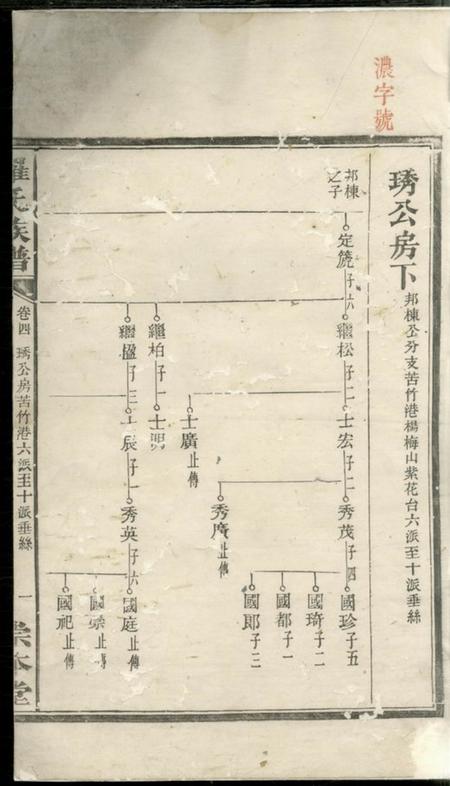 濃字號
琇公房下
邦棟公分支苦竹港楊梅山紫花台六派至十派垂絲
邦棟之子
定篪 子六
繼松 子二
士宏 子二
秀茂 子四
國珍 子五
國琦 子二
國都 子一
國郎 子三
秀廣 止傳
士廣 止傳
繼柏 子一
繼楹 子三
士辰 子一
秀英 子六
國庭 止傳
止傳
國祀 止傳
羅氏族譜
卷四 琇公房苦竹港六派至十派垂絲
一
宗本堂